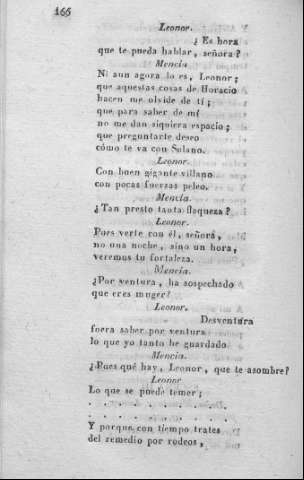 166
Leonor.
¿Es hora
que te pueda hablar, señora?
Mencia
Ni aun agora lo es, Leonor;
que aquestas cosas de Horacio
hacen me olvide de tí;
que para saber de mí
no me dan siquiera espacio;
que preguntarte deseo
cómo te va con Solano.
Leonor.
Con buen gigante villano
con pocas fuerzas peleo.
Mencia.
¿Tan presto tanta flaqueza?
Leonor.
Pues verte con él, señora,
no una noche, sino un hora,
veremos tu fortaleza.
Mencia.
¿Por ventura, ha sospechado
que eres muger?
Leonor.
Desventura
fuera saber por ventura
lo que yo tanto he guardado.
Mencia.
¿Pues qué hay, Leonor, que te asombre?
Leonor
Lo que se puede temer;
. . . . . . . . . . .
. . . . . . . . . . .
Y porque con tiempo trates
del remedio por rodeos,